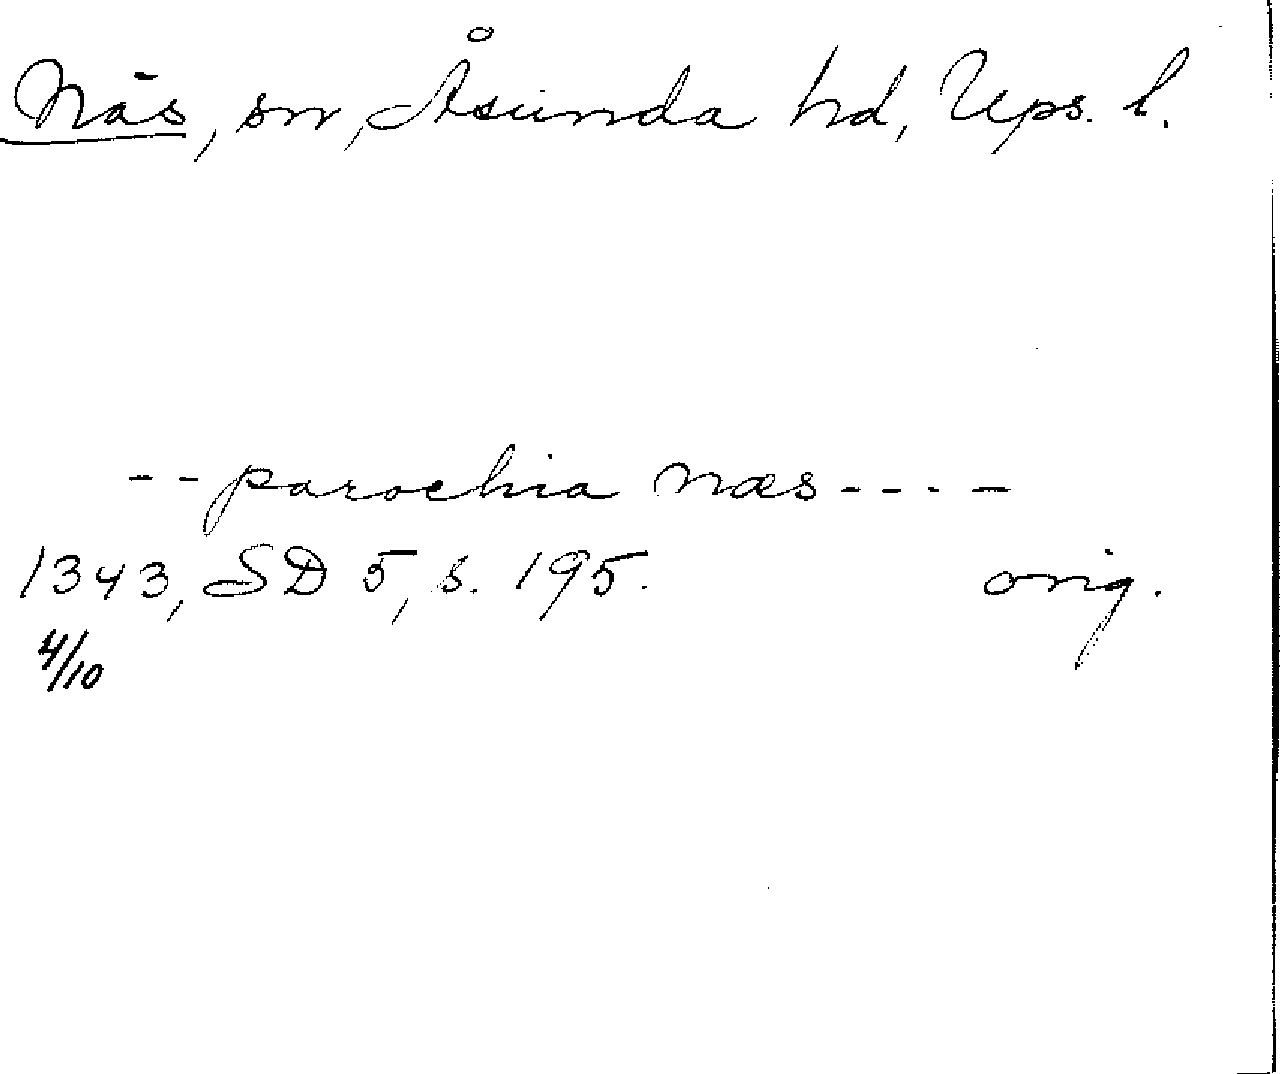 Näs, sn, Åsunda hd, Ups. l.
-- parochia næs ----
1343, SD 5, s. 195. orig.
4/10